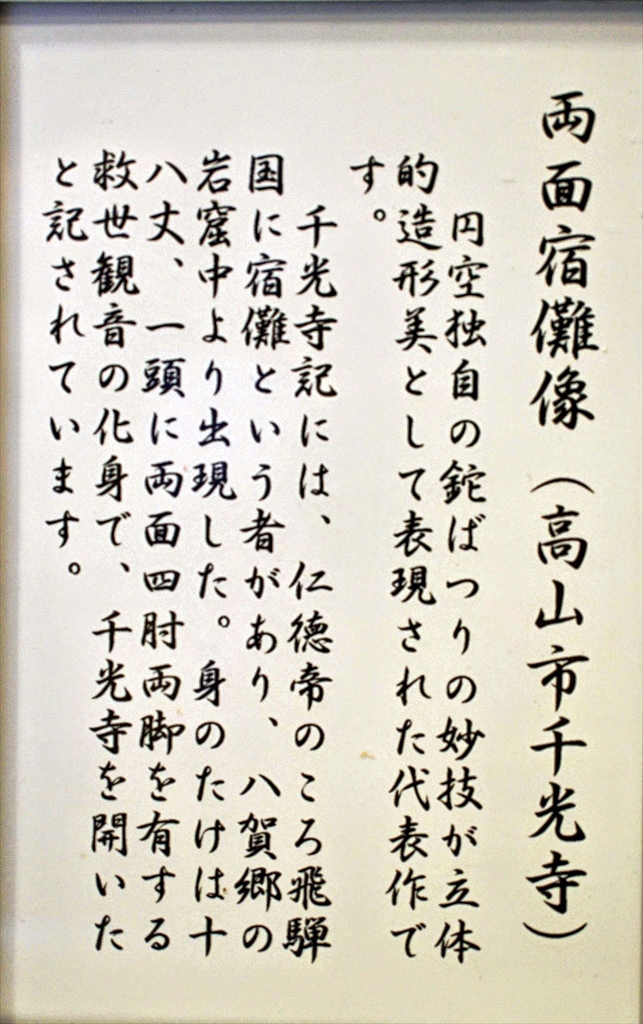 両面宿儺像（高山市千光寺）
円空独自の鉈ばつりの妙技が立体
的造形美として表現された代表作で
す。
千光寺記には、仁徳帝のころ飛騨
国に宿儺という者があり、八賀郷の
岩窟中より出現した。身のたけは十
八丈、一頭に両面四肘両脚を有する
救世観音の化身で、千光寺を開いた
と記されています。